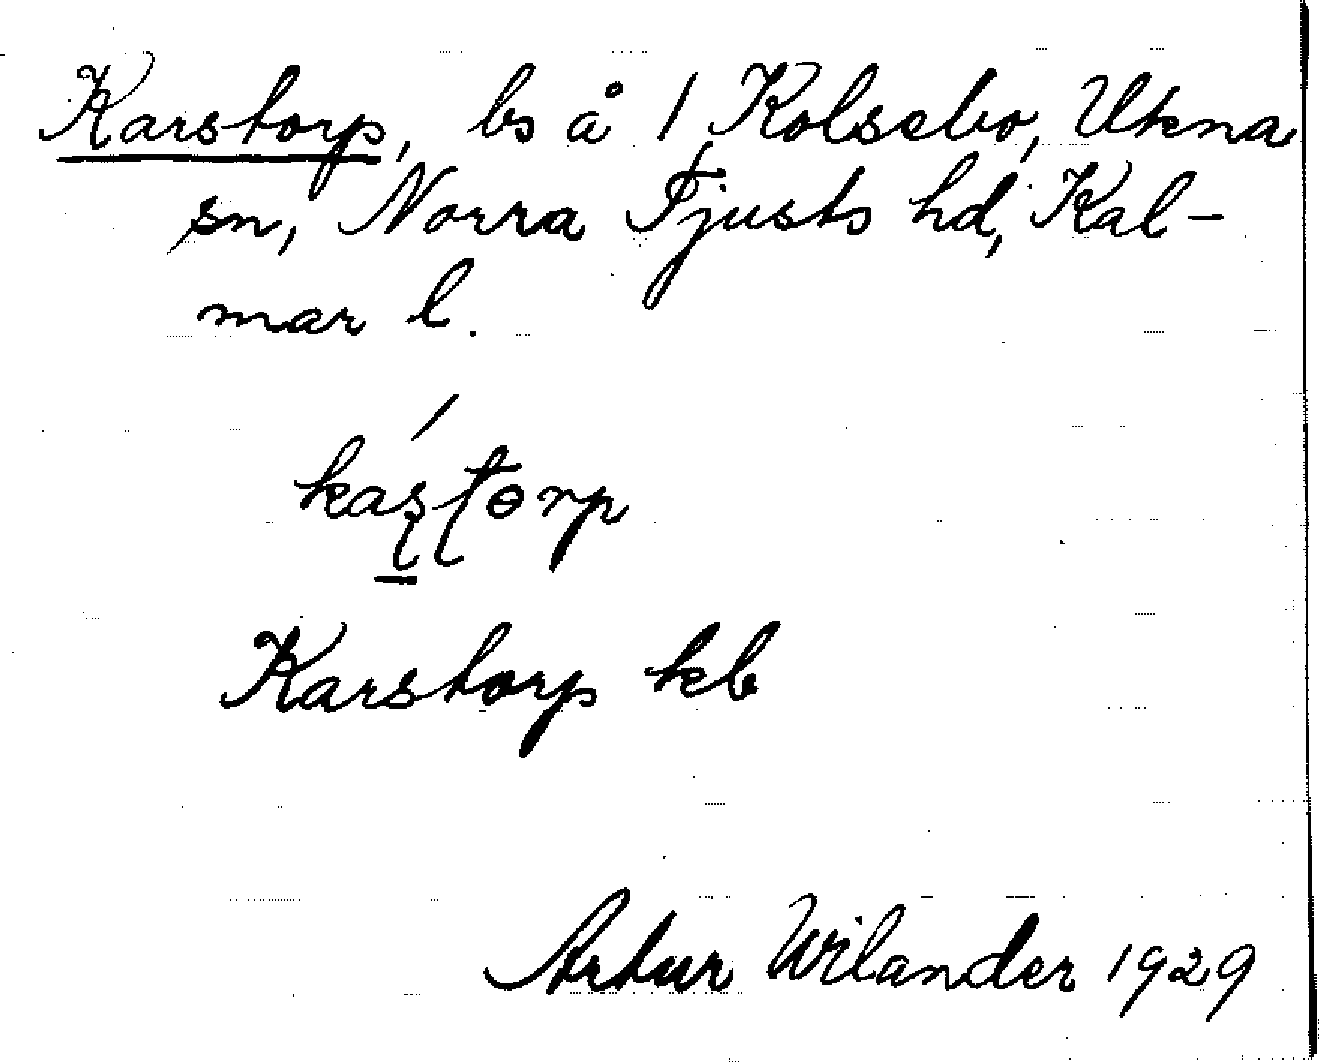 Karstorp, bs å 1 Kolsebo, Ukna
sn, Norra Tjusts hd, Kal-
mar l.
káʂʈɵrp
Karstorp kb
Artur Wilander 1929